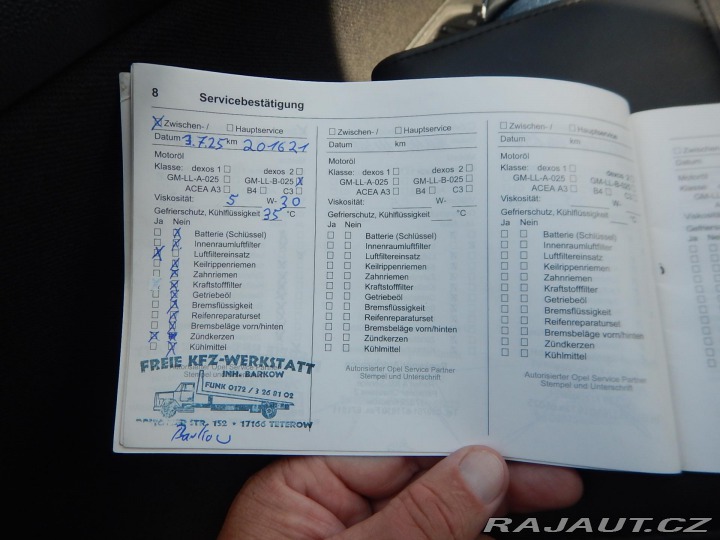 8 Servicebestätigung
☒ Zwischen- / ☐ Hauptservice
Datum 3.7.25 km 201621
Motoröl
Klasse: dexos 1 ☐ dexos 2 ☐
GM-LL-A-025 ☐ GM-LL-B-025 ☒
ACEA A3 ☐ B4 ☐ C3 ☐
Viskosität: 5 W- 30
Gefrierschutz, Kühlflüssigkeit 35 °C
Ja Nein
Batterie (Schlüssel)
Innenraumluftfilter
Luftfiltereinsatz
Keilrippenriemen
Zahnriemen
Kraftstofffilter
Getriebeöl
Bremsflüssigkeit
Reifenreparaturset
Bremsbeläge vorn/hinten
Zündkerzen
Kühlmittel
FREIE KFZ-WERKSTATT
INH. BARKOW
FUNK 0172 / 3 26 81 02
STR. 152 • 17166 TETEROW
Barkow
☐ Zwischen- / ☐ Hauptservice
Datum km
Motoröl
Klasse: dexos 1 ☐ dexos 2 ☐
GM-LL-A-025 ☐ GM-LL-B-025 ☐
ACEA A3 ☐ B4 ☐ C3 ☐
Viskosität: W-
Gefrierschutz, Kühlflüssigkeit °C
Ja Nein
☐ ☐ Batterie (Schlüssel)
☐ ☐ Innenraumluftfilter
☐ ☐ Luftfiltereinsatz
☐ ☐ Keilrippenriemen
☐ ☐ Zahnriemen
☐ ☐ Kraftstofffilter
☐ ☐ Getriebeöl
☐ ☐ Bremsflüssigkeit
☐ ☐ Reifenreparaturset
☐ ☐ Bremsbeläge vorn/hinten
☐ ☐ Zündkerzen
☐ ☐ Kühlmittel
Autorisierter Opel Service Partner
Stempel und Unterschrift
☐ Zwischen- / ☐ Hauptservice
Datum km
Motoröl
Klasse: dexos 1 ☐ dexos 2 ☐
GM-LL-A-025 ☐ GM-LL-B-025 ☐
ACEA A3 ☐ B4 ☐ C3 ☐
Viskosität: W-
Gefrierschutz, Kühlflüssigkeit °C
Ja Nein
☐ ☐ Batterie (Schlüssel)
☐ ☐ Innenraumluftfilter
☐ ☐ Luftfiltereinsatz
☐ ☐ Keilrippenriemen
☐ ☐ Zahnriemen
☐ ☐ Kraftstofffilter
☐ ☐ Getriebeöl
☐ ☐ Bremsflüssigkeit
☐ ☐ Reifenreparaturset
☐ ☐ Bremsbeläge vorn/hinten
☐ ☐ Zündkerzen
☐ ☐ Kühlmittel
Autorisierter Opel Service Partner
Stempel und Unterschrift
☐ Zwischen- /
Datum
Motoröl
Klasse:
Viskosität:
RAJAUT.CZ